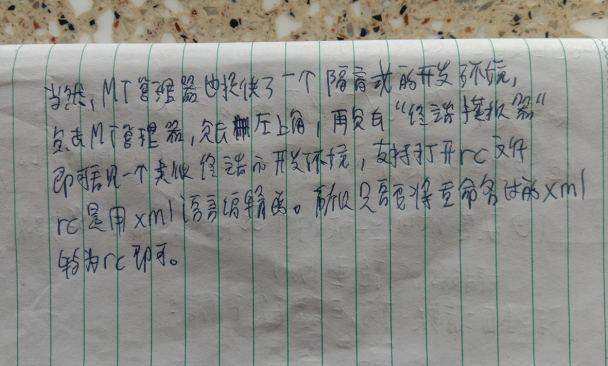 当然，MT管理器也提供了一个隔离式的开发环境，
点击MT管理器，点击左上角，再点击“终端模拟器”
即可据见一个类似终端的开发环境，支持打开rc文件
rc是用xml语言编辑的。所以只需要将重命名过的xml
转为rc即可。